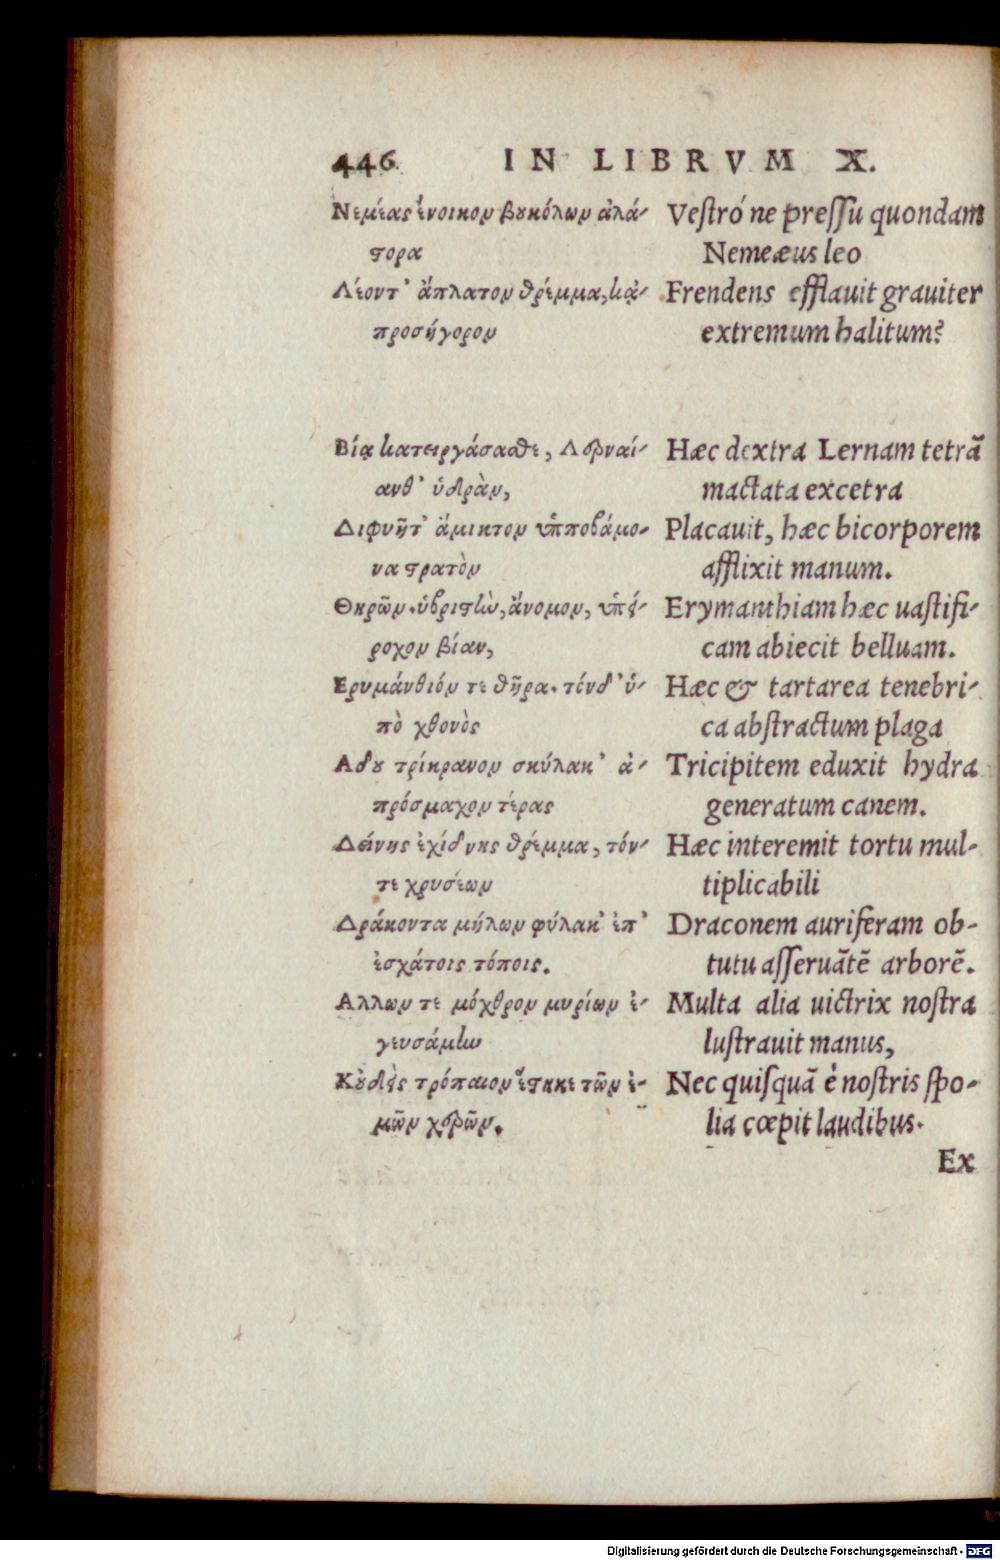 446 IN LIBRVM X.
Νεμέας ἔνοικον βουκόλων ἀλά-
στορα
Λέοντ' ἄπλατον θρέμμα, κἀ-
προσήγορον
Βίᾳ κατειργάσασθε, Λερναί-
ανθ' ὑδρὰν,
Διφυῆτ' ἄμικτον ἱπποβάμο-
να στρατὸν
Θηρῶν. ὑβριστὴν, ἄνομον, ὑπέ-
ροχον βίαν,
Ερυμάνθιόν τε θῆρα. τόνδ' ὑ-
πὸ χθονὸς
Αδου τρίκρανον σκύλακ' ἀ-
πρόσμαχον τέρας
Δείνης ἐχίδνης θρέμμα, τόν-
τε χρυσέων
Δράκοντα μήλων φύλακ' ἐπ'
ἐσχάτοις τόποις.
Αλλων τε μόχθρον μυρίων ἐ-
γευσάμην
Κοὐδεὶς τρόπαιον ἔστηκε τῶν ἐ-
μῶν χερῶν.
Vestróne pressu quondam
Nemeæus leo
Frendens efflauit grauiter
extremum halitum?
Hæc dextra Lernam tetrã
mactata excetra
Placauit, hæc bicorporem
afflixit manum.
Erymanthiam hæc uastifi-
cam abiecit belluam.
Hæc & tartarea tenebri-
ca abstractum plaga
Tricipitem eduxit hydra
generatum canem.
Hæc interemit tortu mul-
tiplicabili
Draconem auriferam ob-
tutu asseruãtẽ arborẽ.
Multa alia uictrix nostra
lustrauit manus,
Nec quisquã è nostris spo-
lia cœpit laudibus.
Ex
Digitalisierung gefördert durch die Deutsche Forschungsgemeinschaft - DFG